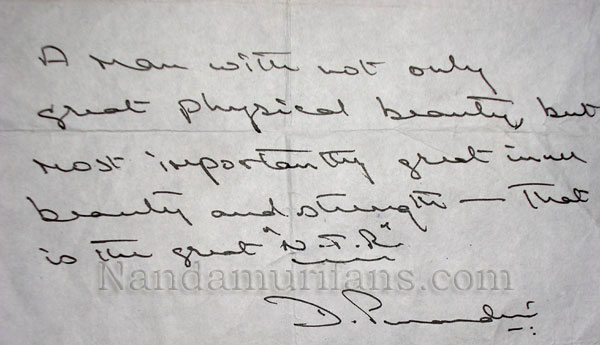 A man with not only
great physical beauty, but
most importantly great inner
beauty and strength — That
is the great "N.T.R"
Nandamurifans.com
D. Purandeswari